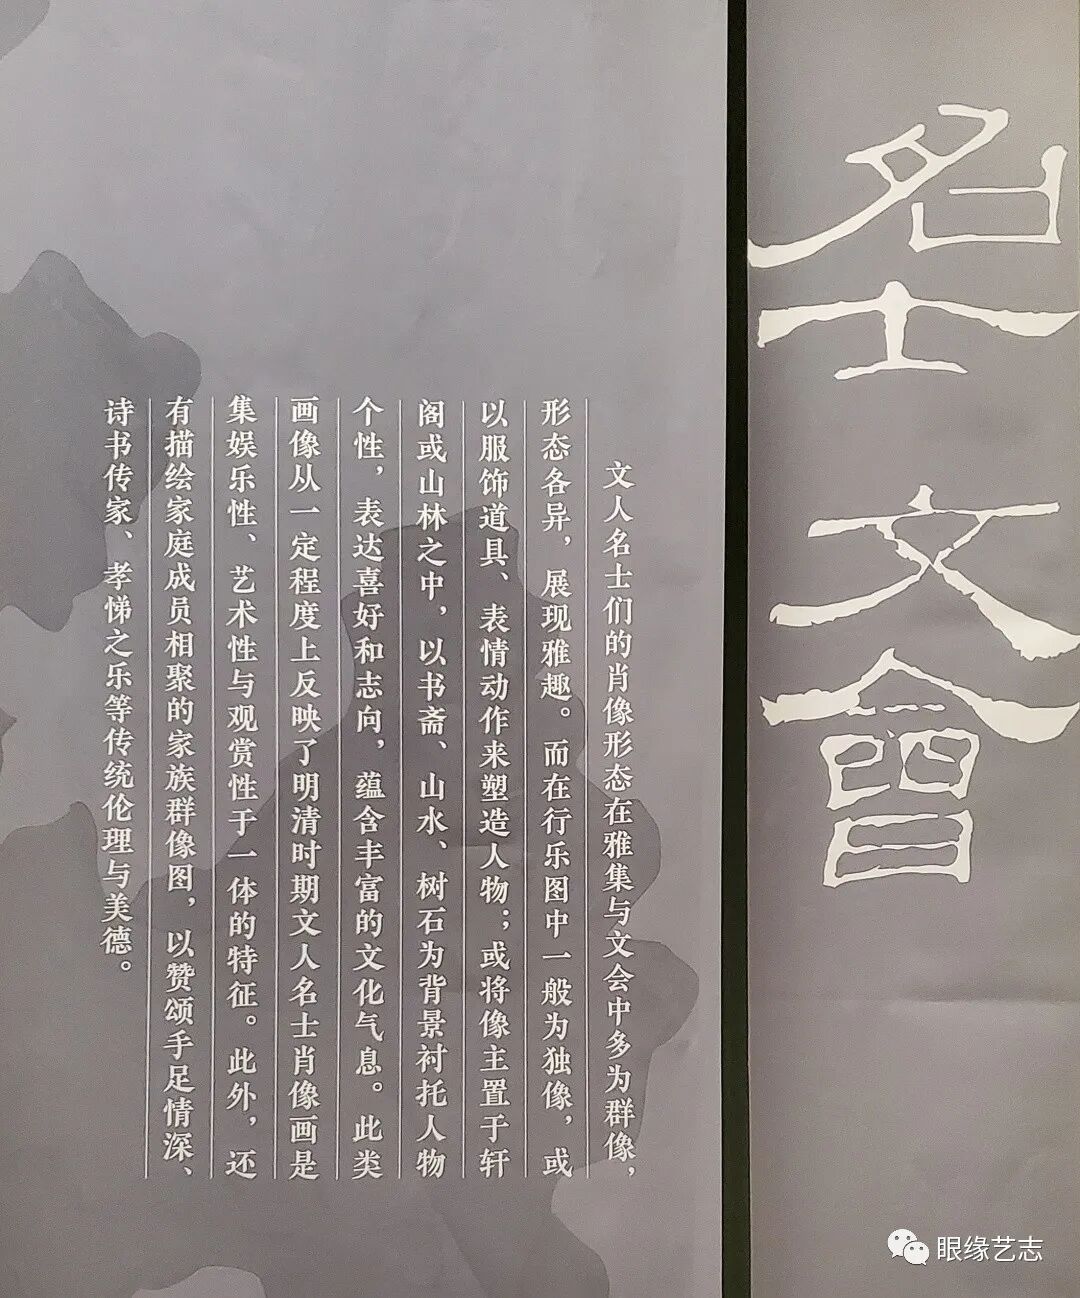 名士文會
文人名士们的肖像形态在雅集与文会中多为群像，
形态各异，展现雅趣。而在行乐图中一般为独像，或
以服饰道具、表情动作来塑造人物；或将像主置于轩
阁或山林之中，以书斋、山水、树石为背景衬托人物
个性，表达喜好和志向，蕴含丰富的文化气息。此类
画像从一定程度上反映了明清时期文人名士肖像画是
集娱乐性、艺术性与观赏性于一体的特征。此外，还
有描绘家庭成员相聚的家族群像图，以赞颂手足情深、
诗书传家、孝悌之乐等传统伦理与美德。
眼缘艺志